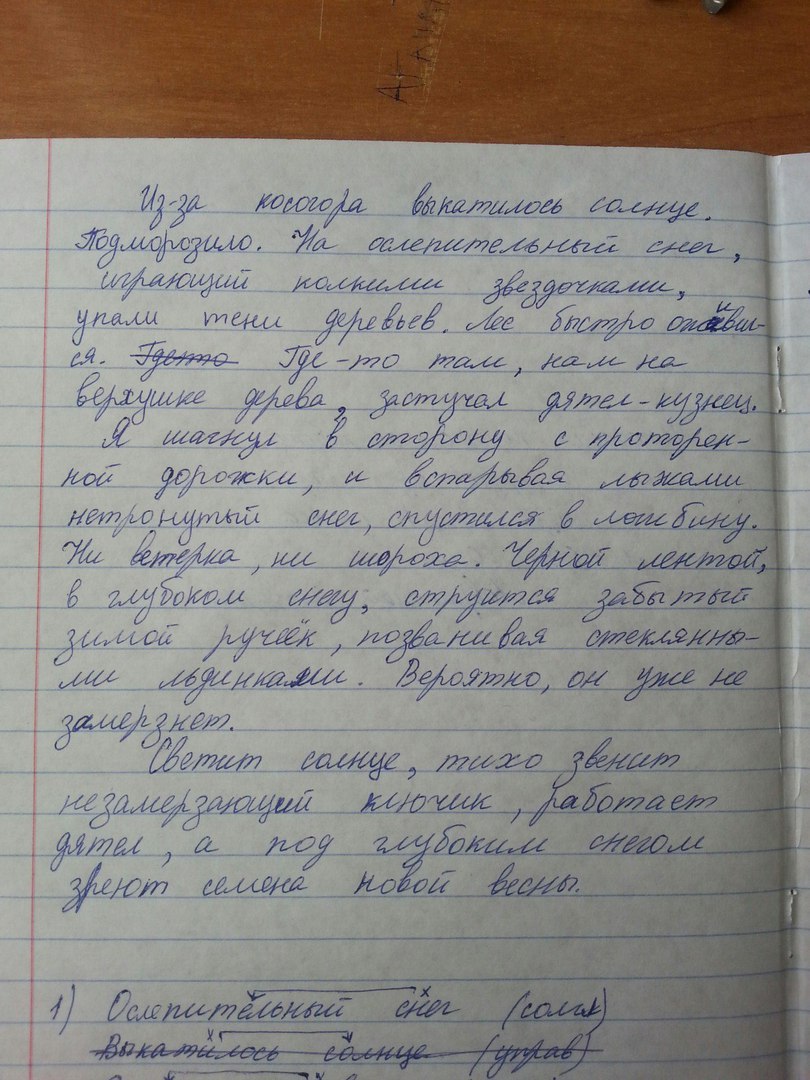 Из-за косогора выкатилось солнце.
Подморозило. На ослепительный снег,
играющий колкими звездочками,
упали тени деревьев. Лес быстро оживил-
ся. Гдето Где-то там, нам на
верхушке дерева, застучал дятел-кузнец.
Я шагнул в сторону с проторен-
ной дорожки, и вспарывая лыжами
нетронутый снег, спустился в ложбину.
Ни ветерка, ни шороха. Черной лентой,
в глубоком снегу, струится забытый
зимой ручеёк, позванивая стеклянны-
ми льдинками. Вероятно, он уже не
замерзнет.
Светит солнце, тихо звенит
незамерзающий ключик, работает
дятел, а под глубоким снегом
зреют семена новой весны.
1) Ослепительный снег (согл)
Выкатилось солнце (управ)